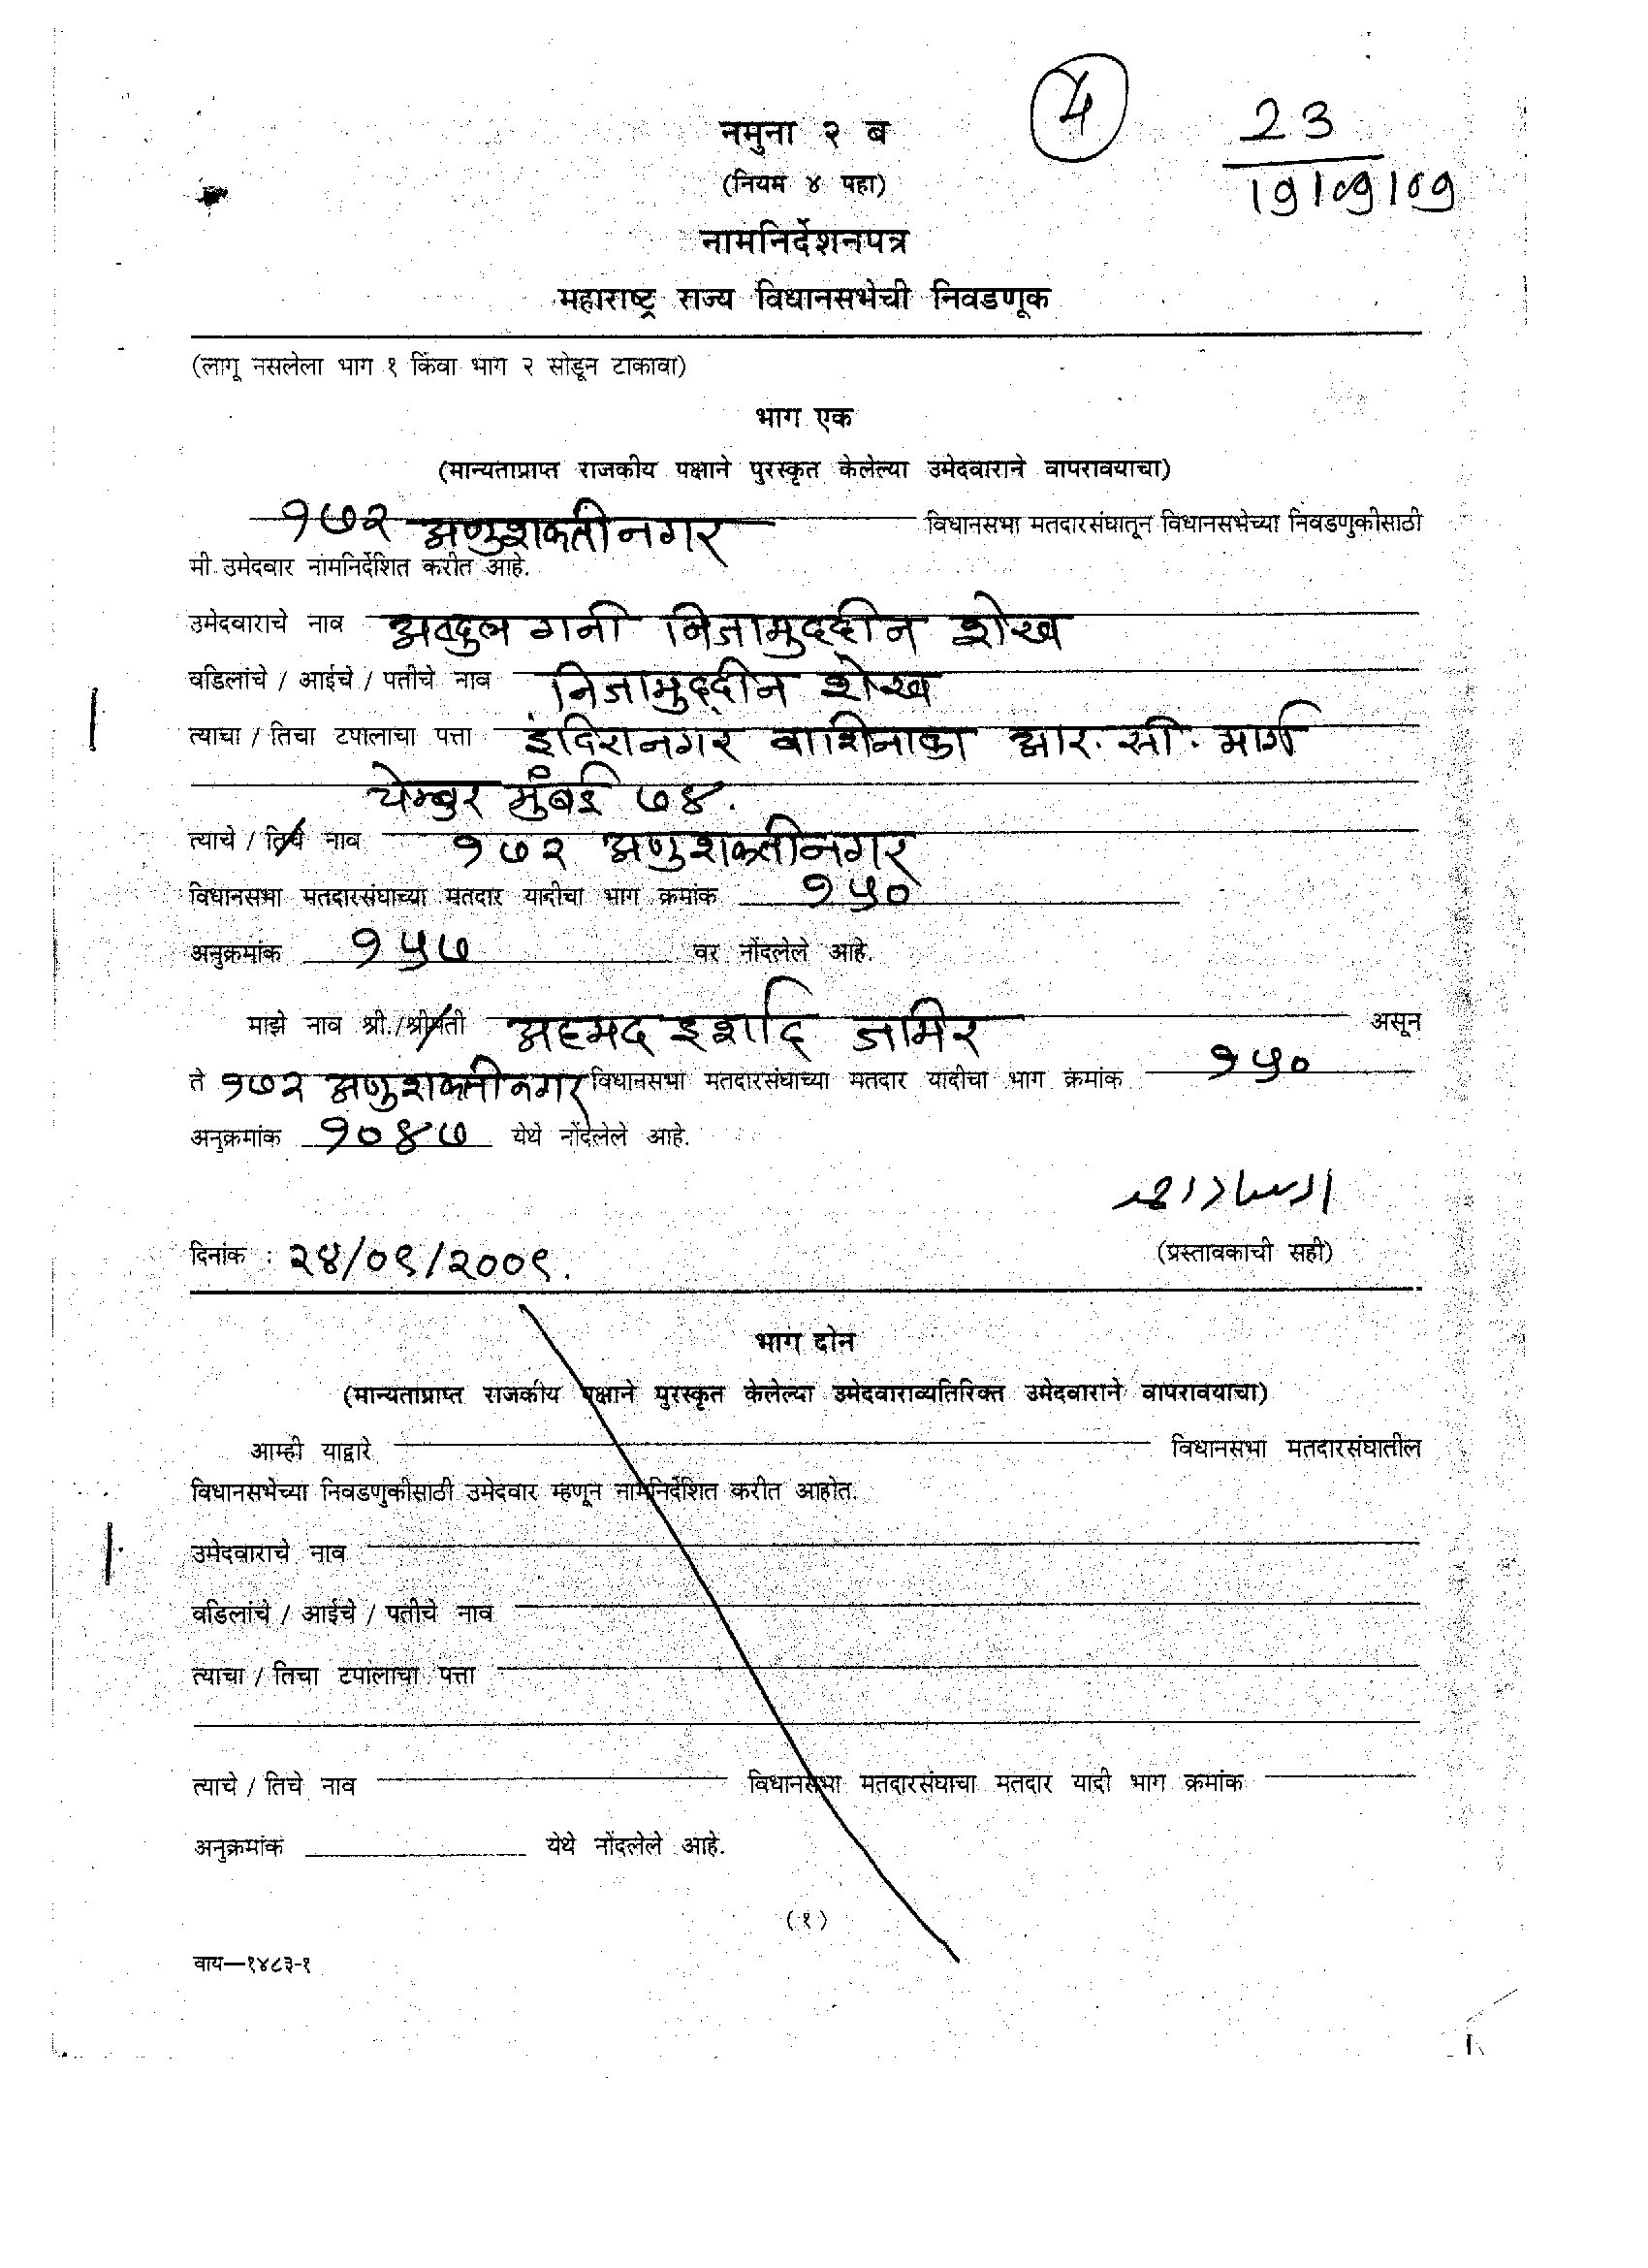 नमुना २ ब
4
23
19/09/09
(नियम ४ पहा)
नामनिर्देशनपत्र
महाराष्ट्र राज्य विधानसभेची निवडणूक
(लागू नसलेला भाग १ किंवा भाग २ सोडून टाकावा)
भाग एक
(मान्यताप्राप्त राजकीय पक्षाने पुरस्कृत केलेल्या उमेदवाराने वापरावयाचा)
१७२ अणुशक्तीनगर विधानसभा मतदारसंघातून विधानसभेच्या निवडणुकीसाठी
मी उमेदवार नामनिर्देशित करीत आहे.
उमेदवाराचे नाव अब्दुल गनी निजामुद्दीन शेख
वडिलांचे / आईचे / पतीचे नाव निजामुद्दीन शेख
त्याचा / तिचा टपालाचा पत्ता इंदिरानगर वाशिनाका आर. सी. मार्ग
चेम्बुर मुंबई ७४.
त्याचे / तिचे नाव १७२ अणुशक्तीनगर
विधानसभा मतदारसंघाच्या मतदार यादीचा भाग क्रमांक १५०
अनुक्रमांक १५७ वर नोंदलेले आहे.
माझे नाव श्री./श्रीमती अहमद इर्शाद जामिर असून
ते १७२ अणुशक्तीनगर विधानसभा मतदारसंघाच्या मतदार यादीचा भाग क्रमांक १५०
अनुक्रमांक १०४७ येथे नोंदलेले आहे.
दिनांक : २४/०९/२००९.
(प्रस्तावकाची सही)
भाग दोन
(मान्यताप्राप्त राजकीय पक्षाने पुरस्कृत केलेल्या उमेदवाराव्यतिरिक्त उमेदवाराने वापरावयाचा)
आम्ही याद्वारे विधानसभा मतदारसंघातील
विधानसभेच्या निवडणुकीसाठी उमेदवार म्हणून नामनिर्देशित करीत आहोत.
उमेदवाराचे नाव
वडिलांचे / आईचे / पतीचे नाव
त्याचा / तिचा टपालाचा पत्ता
त्याचे / तिचे नाव विधानसभा मतदारसंघाचा मतदार यादी भाग क्रमांक
अनुक्रमांक येथे नोंदलेले आहे.
(१)
वाय—१४८३-१